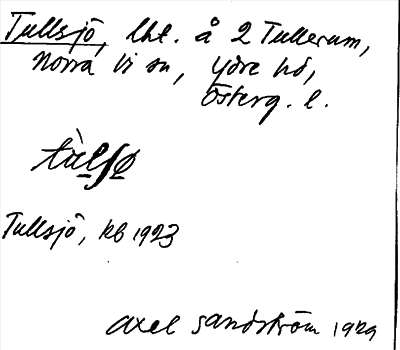 Tullsjö, lht. å 2 Tullerum,
Norra Vi sn, Ydre hd,
Österg. l.
tùlʃø
Tullsjö, kb 1923
Axel Sandström 1929